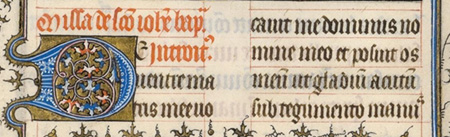 Missa de sc̄o ioh̄e bap̄.
DE Introit᷒.
uentre ma
tris mee uo
cauit me dominus no
mine meo et posuit os
meū ut gladiū acutū
sub tegumento manu᷒